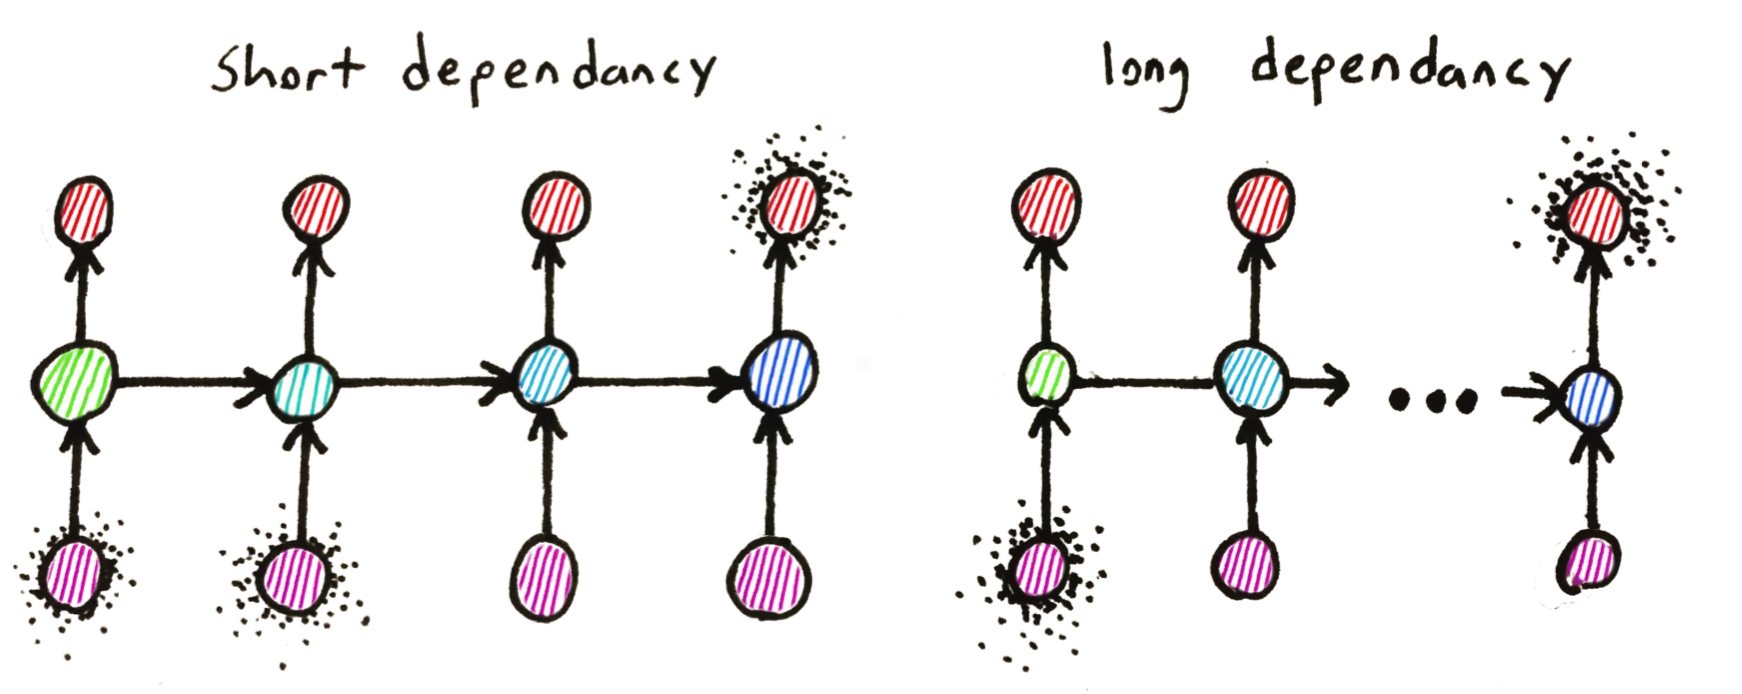 short dependancy
long dependancy